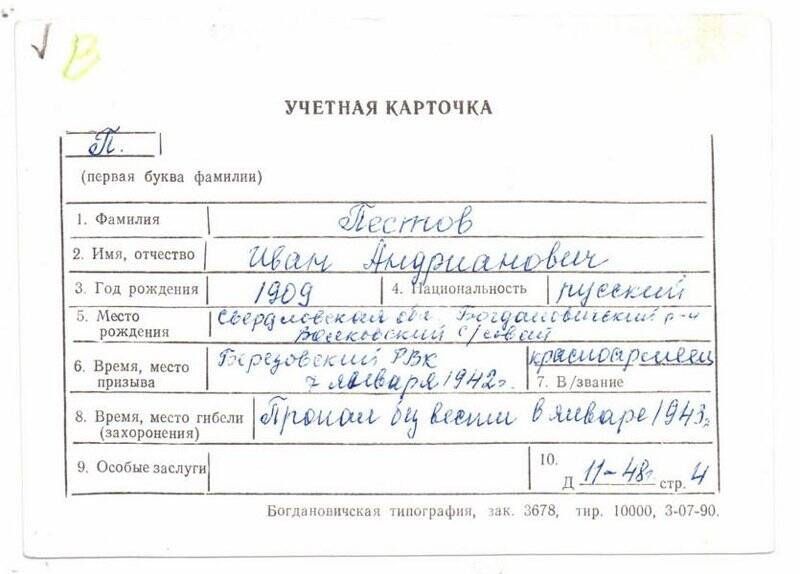 √ В
УЧЕТНАЯ КАРТОЧКА
П.
(первая буква фамилии)
1. Фамилия Пестов
2. Имя, отчество Иван Андрианович
3. Год рождения 1909 4. Национальность русский
5. Место рождения Свердловская обл. Богдановичский р-н
Волковский с/совет
6. Время, место призыва Березовский РВК
7 января 1942г.
красноармеец
7. В/звание
8. Время, место гибели (захоронения) Пропал без вести в январе 1943г.
9. Особые заслуги
10.
Д 11-48г. стр. 4
Богдановичская типография, зак. 3678, тир. 10000, 3-07-90.